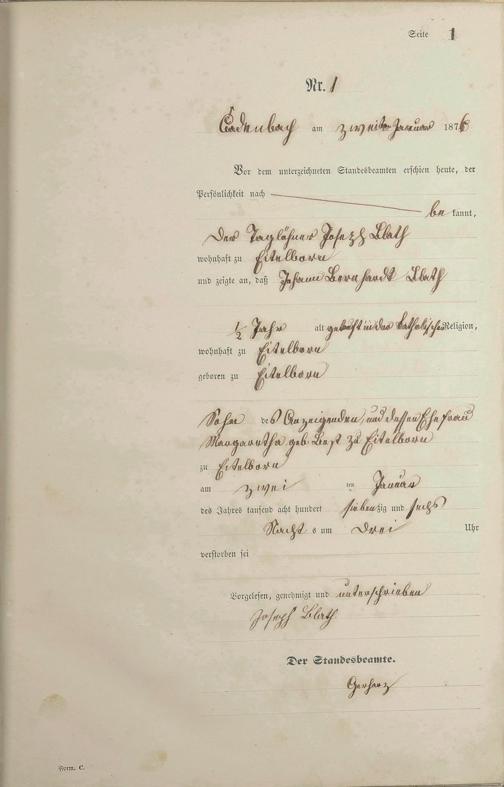 Seite 1
Nr. 1
Cadenbach am zweiten Januar 1876
Vor dem unterzeichneten Standesbeamten erschien heute, der
Persönlichkeit nach
be kannt,
Der Taglöhner Joseph Blath
wohnhaft zu Eitelborn
und zeigte an, daß Johann Bernhardt Blath
½ Jahr alt getauft in der katholischen Religion,
wohnhaft zu Eitelborn
geboren zu Eitelborn
Sohn des Anzeigenden, und dessen Ehefrau
Margaretha geb. zu Eitelborn
zu Eitelborn
am zwei ten Januar
des Jahres tausend acht hundert siebenzig und sechs
Nacht s um drei Uhr
verstorben sei
Vorgelesen, genehmigt und unterschrieben
Joseph Blath
Der Standesbeamte.
Gerharz
Form. C.